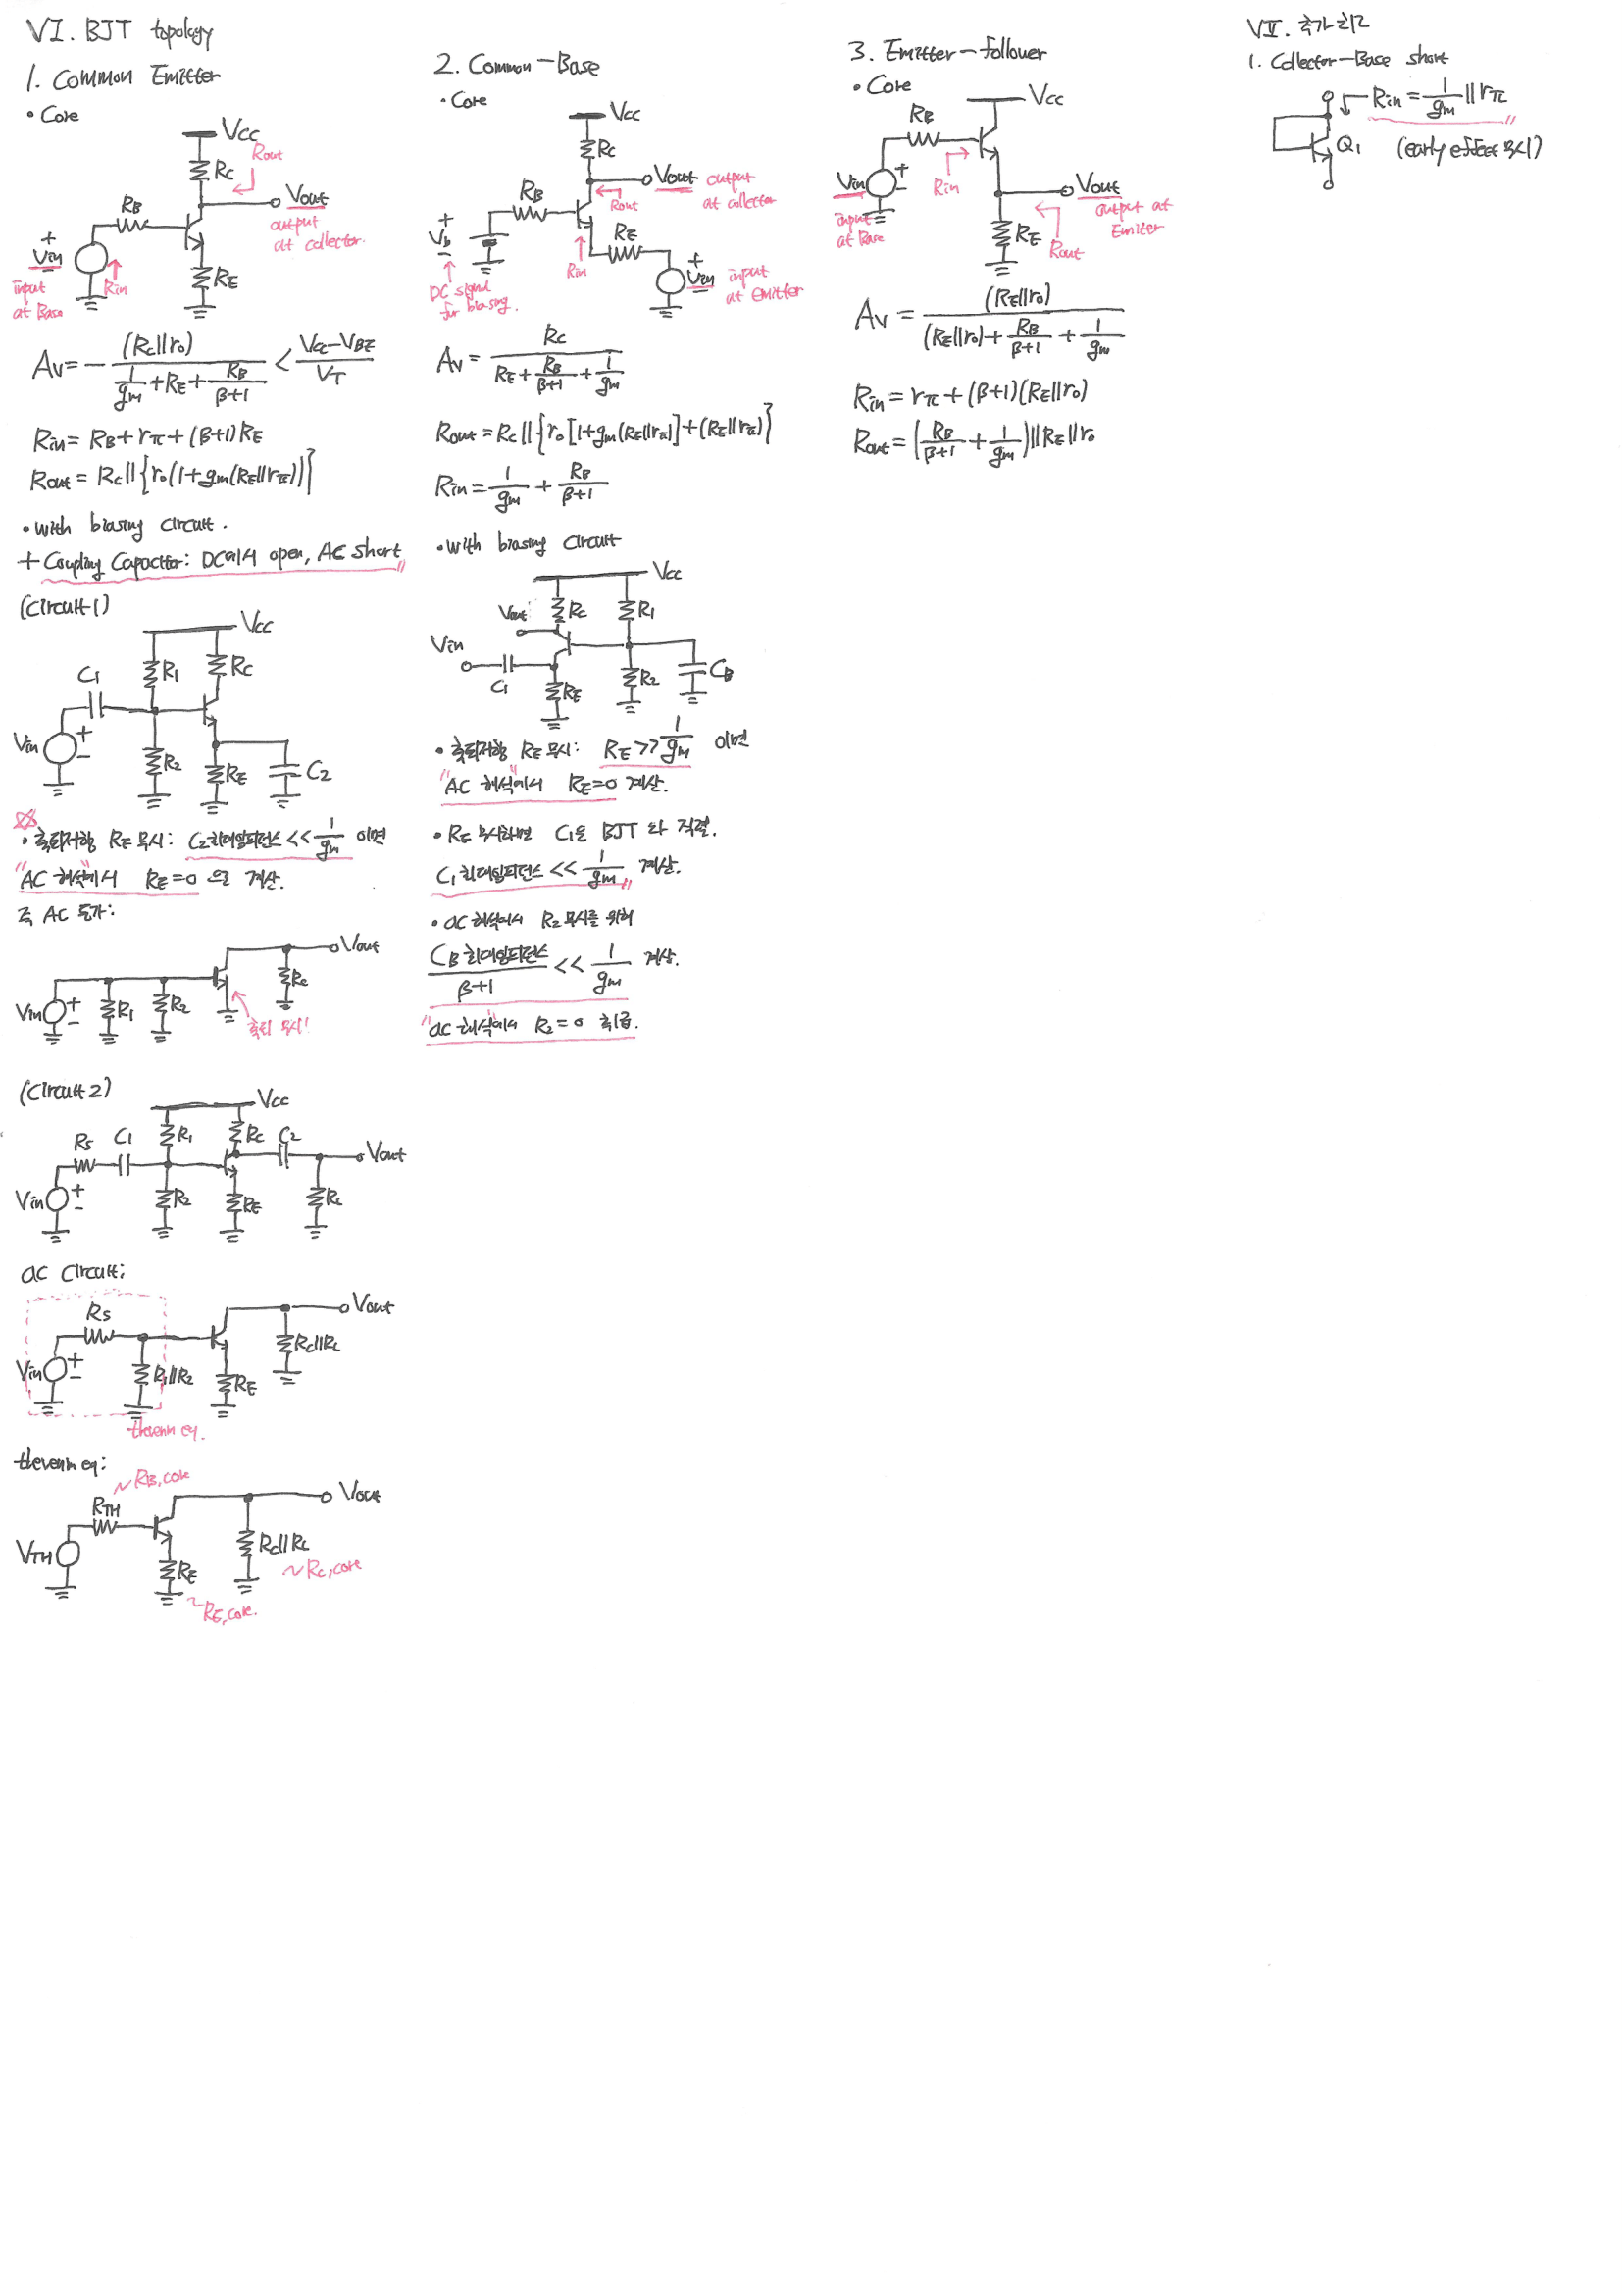 VI. BJT topology
1. Common Emitter
• Core
Vcc
Rc
Rout
Vout
output
at collector.
RB
+
Vin
-
input
at Base
Rin
RE
Av = - (Rc||ro) / (1/gm + RE + RB/(β+1)) < (Vcc-VBE)/VT
Rin = RB + rπ + (β+1)RE
Rout = Rc || {ro(1+gm(RE||rπ))}
• with biasing circuit.
+ Coupling Capacitor: DC에서 open, AC short
(Circuit 1)
Vcc
C1
R1
Rc
Vin
+
-
R2
RE
C2
• 축퇴저항 RE 무시: C2 최대임피던스 << 1/gm 이면
"AC 해석"에서 RE=0 으로 계산.
즉 AC 등가:
Vout
Rc
Vin
+
-
R1
R2
축퇴 무시!
(Circuit 2)
Vcc
Rs
C1
R1
Rc
C2
Vout
Vin
+
-
R2
RE
RL
ac circuit:
Rs
Vout
Vin
+
-
R1||R2
RE
Rc||RL
thevenin eq.
thevenin eq:
~RB,core
RTH
Vout
VTH
RE
Rc||RL
~Rc,core
~RE,core.
2. Common-Base
• Core
Vcc
Rc
Vout
output
at collector
RB
Rout
+
Vb
-
RE
Rin
+
Vin
-
input
at emitter
DC signal
for biasing.
Av = Rc / (RE + RB/(β+1) + 1/gm)
Rout = Rc || {ro[1+gm(RE||rπ)] + (RE||rπ)}
Rin = 1/gm + RB/(β+1)
• with biasing circuit
Vcc
Vout
Rc
R1
Vin
C1
RE
R2
CB
• 축퇴저항 RE 무시: RE >> 1/gm 이면
"AC 해석"에서 RE=0 계산.
• RE 무시하면 C1은 BJT 와 직렬.
C1 최대임피던스 << 1/gm 계산.
• ac 해석에서 R2 무시를 위해
CB 최대임피던스/(β+1) << 1/gm 계산.
"ac 해석"에서 R2=0 취급.
3. Emitter-follower
• Core
Vcc
RB
Vin
+
-
input
at Base
Rin
Vout
output at
Emitter
RE
Rout
Av = (RE||ro) / ((RE||ro) + RB/(β+1) + 1/gm)
Rin = rπ + (β+1)(RE||ro)
Rout = (RB/(β+1) + 1/gm) || RE || ro
VII. 추가 회로
1. Collector-Base short
Rin = 1/gm || rπ
Q1
(early effect 무시)